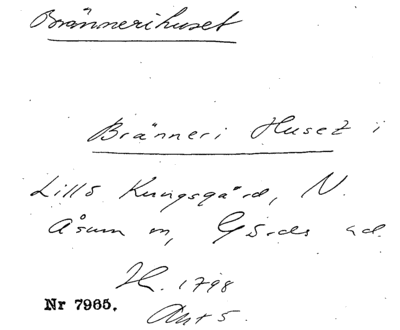 Brännerihuset
Bränneri Huset i
Lillö Kungsgård, N.
Åsum sn, Gärds hd.
H. 1798
Akt 5.
Nr 7965.